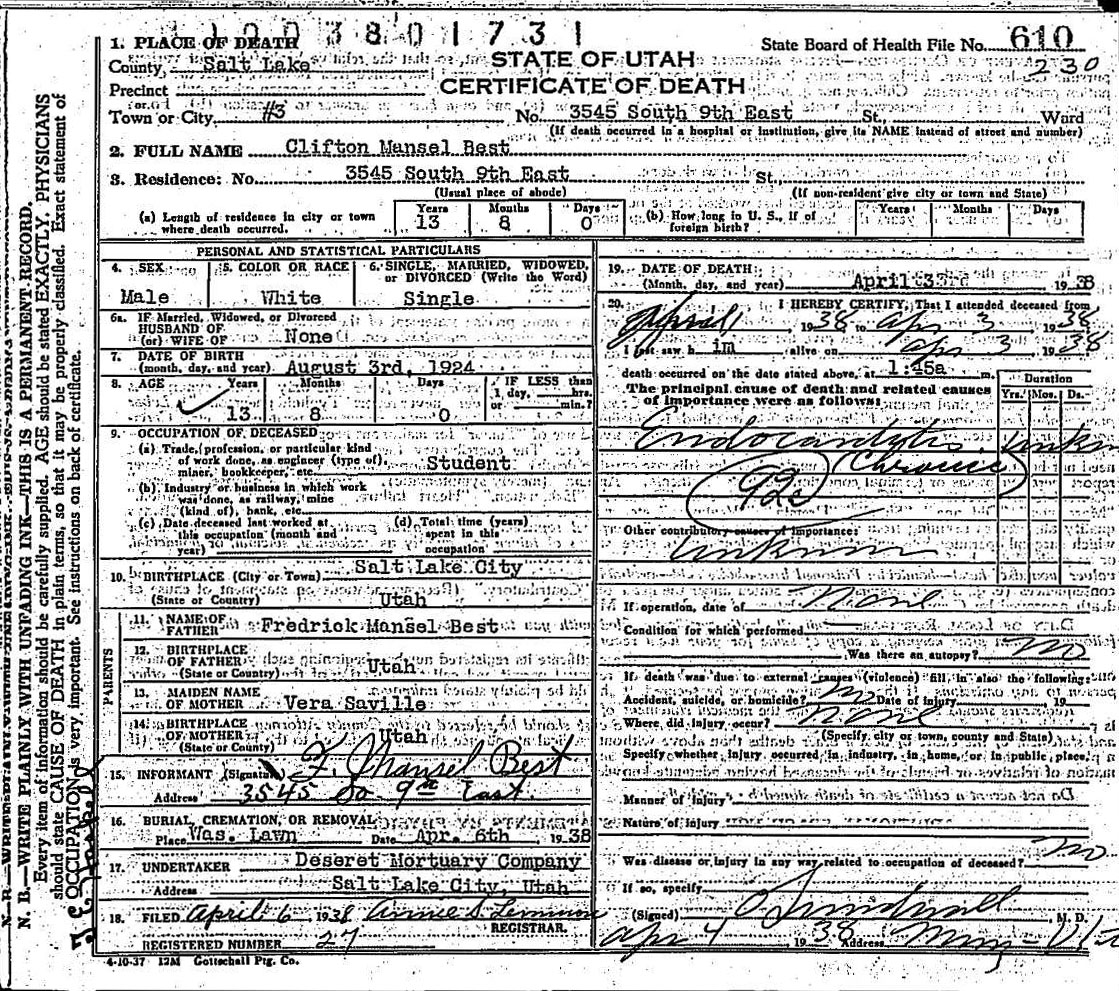 1003801731
1. PLACE OF DEATH
County, Salt Lake
Precinct
Town or City #3
STATE OF UTAH
CERTIFICATE OF DEATH
State Board of Health File No. 610
230
No. 3545 South 9th East St., Ward
(If death occurred in a hospital or institution, give its NAME instead of street and number)
2. FULL NAME Clifton Mansel Best
3. Residence: No. 3545 South 9th East St.,
(Usual place of abode) (If non-resident give city or town and State)
(a) Length of residence in city or town where death occurred. Years 13 Months 8 Days 0
(b) How long in U. S., if of foreign birth? Years Months Days
PERSONAL AND STATISTICAL PARTICULARS
4. SEX Male
5. COLOR OR RACE White
6. SINGLE, MARRIED, WIDOWED, or DIVORCED (Write the Word) Single
6a. IF Married, Widowed, or Divorced
HUSBAND OF
(or) WIFE OF None
7. DATE OF BIRTH
(month, day, and year) August 3rd, 1924
8. AGE Years 13 Months 8 Days 0 IF LESS than 1 day, hrs. or min.?
9. OCCUPATION OF DECEASED
(a) Trade, profession, or particular kind
of work done, as engineer (type of),
miner, bookkeeper, etc. Student
(b) Industry or business in which work
was done, as railway, mine
(kind of), bank, etc.
(c) Date deceased last worked at
this occupation (month and
year)
(d) Total time (years)
spent in this
occupation
10. BIRTHPLACE (City or Town) Salt Lake City
(State or Country) Utah
PARENTS
11. NAME OF
FATHER Fredrick Mansel Best
12. BIRTHPLACE
OF FATHER Utah
(State or Country)
13. MAIDEN NAME
OF MOTHER Vera Saville
14. BIRTHPLACE
OF MOTHER Utah
(State or County)
15. INFORMANT (Signature) F. Mansel Best
Address 3545 So 9th East.
16. BURIAL, CREMATION, OR REMOVAL
Place Was. Lawn Date Apr. 6th 1938
17. UNDERTAKER Deseret Mortuary Company
Address Salt Lake City, Utah
18. FILED April 6 1938 Annie S. Lemmon
REGISTRAR.
REGISTERED NUMBER 27
4-10-37 12M Gottschall Ptg. Co.
19. DATE OF DEATH:
(Month, day, and year) April 33rd 1938
20. I HEREBY CERTIFY, That I attended deceased from
April 1938 to apr 3 1938
I last saw him alive on apr 3 1938
death occurred on the date stated above, at 1:45a m.
The principal cause of death and related causes
of importance were as follows:
Duration
Yrs. Mos. Ds.
Endocarditis
Chronic
92c
Other contributory causes of importance:
unknown
If operation, date of None
Condition for which performed
Was there an autopsy? no
If death was due to external causes (violence) fill in also the following:
Accident, suicide, or homicide? no Date of injury 19
Where did injury occur? None
(Specify city or town, county and State)
Specify whether injury occurred in industry, in home, or in public place.
Manner of injury
Nature of injury
Was disease or injury in any way related to occupation of deceased? no
If so, specify
(Signed) M. D.
apr 4 1938 Address
N. B.—WRITE PLAINLY WITH UNFADING INK—THIS IS A PERMANENT RECORD.
Every item of information should be carefully supplied. AGE should be stated EXACTLY. PHYSICIANS
should state CAUSE OF DEATH in plain terms, so that it may be properly classified. Exact statement of
OCCUPATION is very important. See instructions on back of certificate.